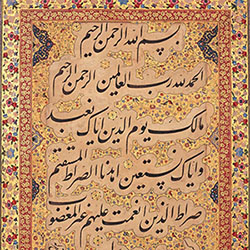 بسم الله الرحمن الرحيم
الحمد لله رب العالمين الرحمن الرحيم
مالك يوم الدين اياك نعبد
واياك نستعين اهدنا الصراط المستقيم
صراط الذين انعمت عليهم غير المغضوب